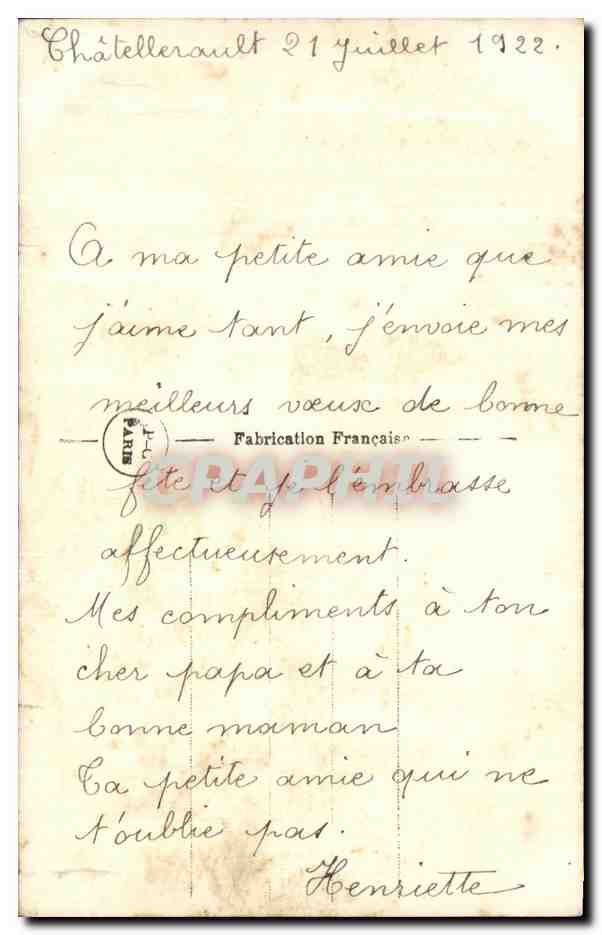 Châtellerault 21 Juillet 1922.
A ma petite amie que
j'aime tant, j'envoie mes
meilleurs vœux de bonne
PARIS
Fabrication Française
fête et je l'embrasse
CPAPHIL
affectueusement.
Mes compliments à ton
cher papa et à ta
bonne maman
Ta petite amie qui ne
t'oublie pas.
Henriette